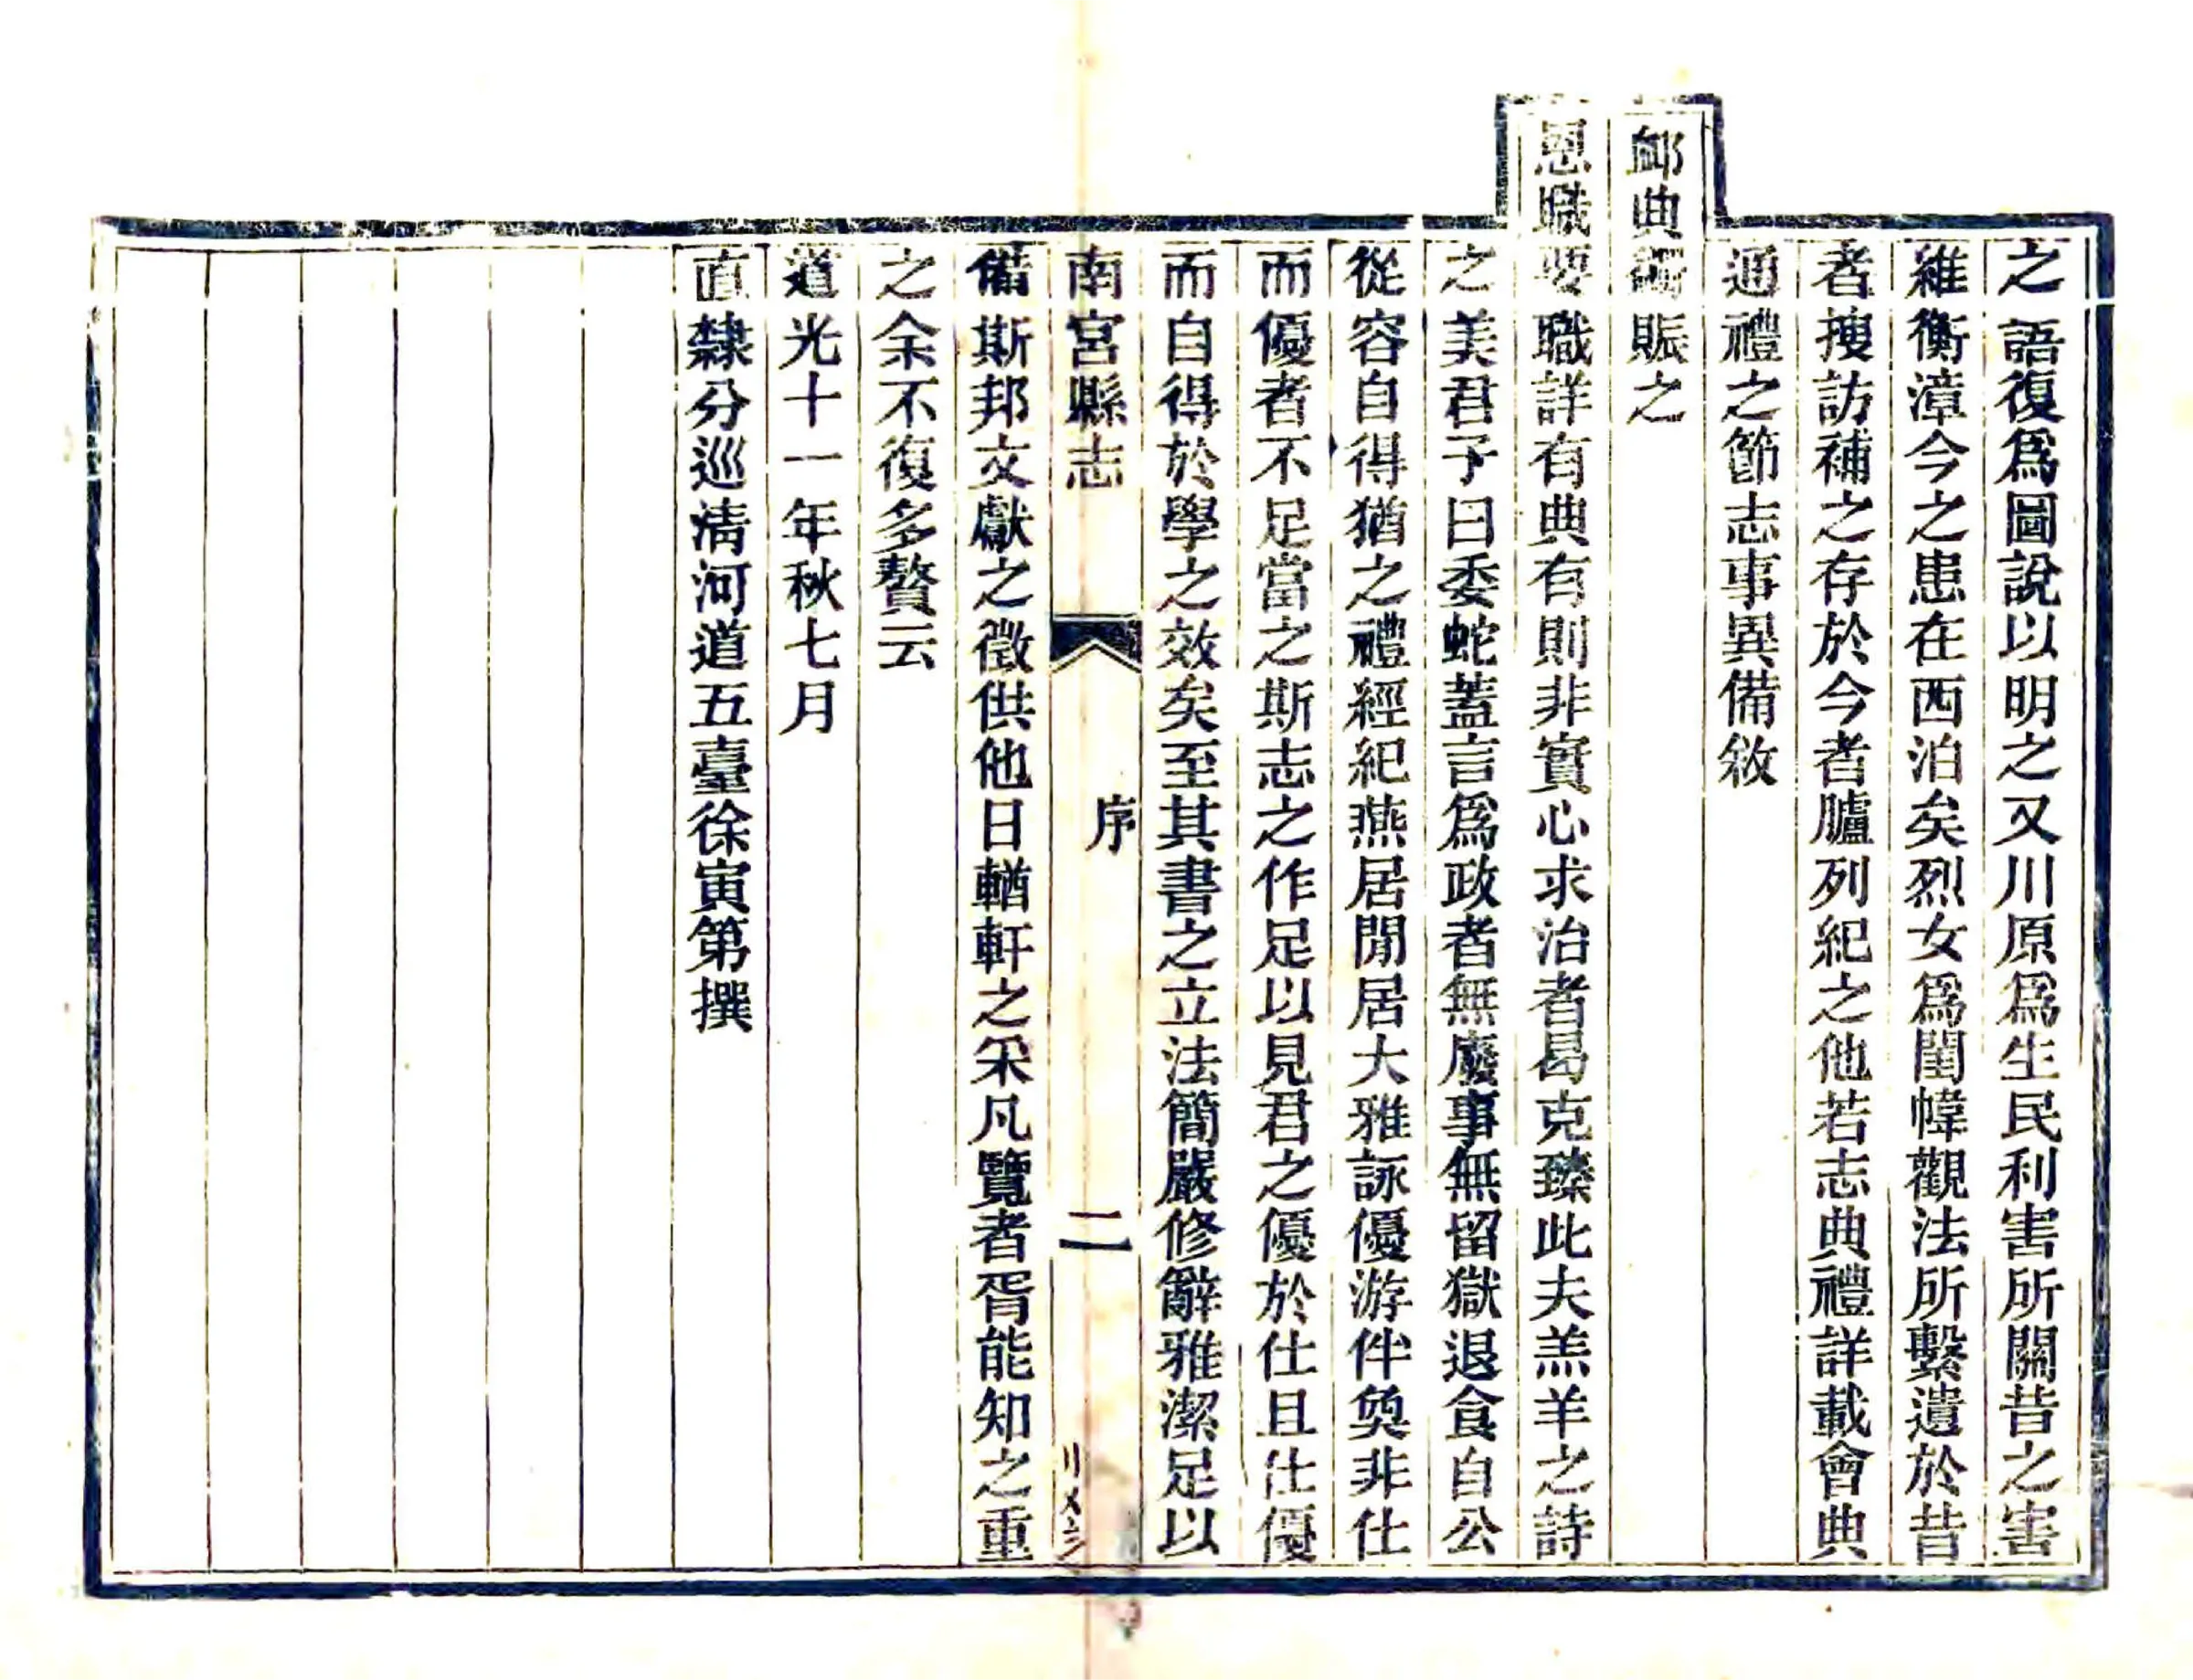 之語復爲圖說以明之又川原爲生民利害所關昔之害
維衡漳今之患在西泊矣烈女爲閨幃觀法所繫遺於昔
者搜訪補之存於今者臚列紀之他若志典禮詳載會典
通禮之節志事異備敘
䘏典蠲賑之
恩職要職詳有典有則非實心求治者曷克臻此夫羔羊之詩
之美君子曰委蛇蓋言爲政者無廢事無留獄退食自公
從容自得猶之禮經紀燕居閒居大雅詠優游伴奐非仕
而優者不足當之斯志之作足以見君之優於仕且仕優
而自得於學之效矣至其書之立法簡嚴修辭雅潔足以
南宮縣志
序
二
備斯邦文獻之徵供他日輶軒之采凡覽者胥能知之重
之余不復多贅云
道光十一年秋七月
直隸分巡清河道五臺徐寅第撰